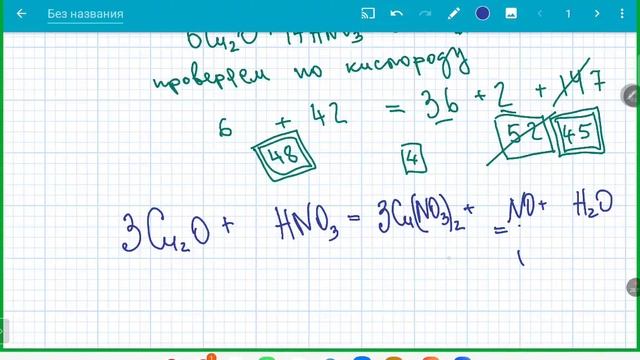 Без названия
1
6Cu₂O + 14HNO₃
проверяем по кислороду
6 + 42 = 36 + 2 + 147
48 4 52 45
3Cu₂O + HNO₃ = 3Cu(NO₃)₂ + = NO + H₂O